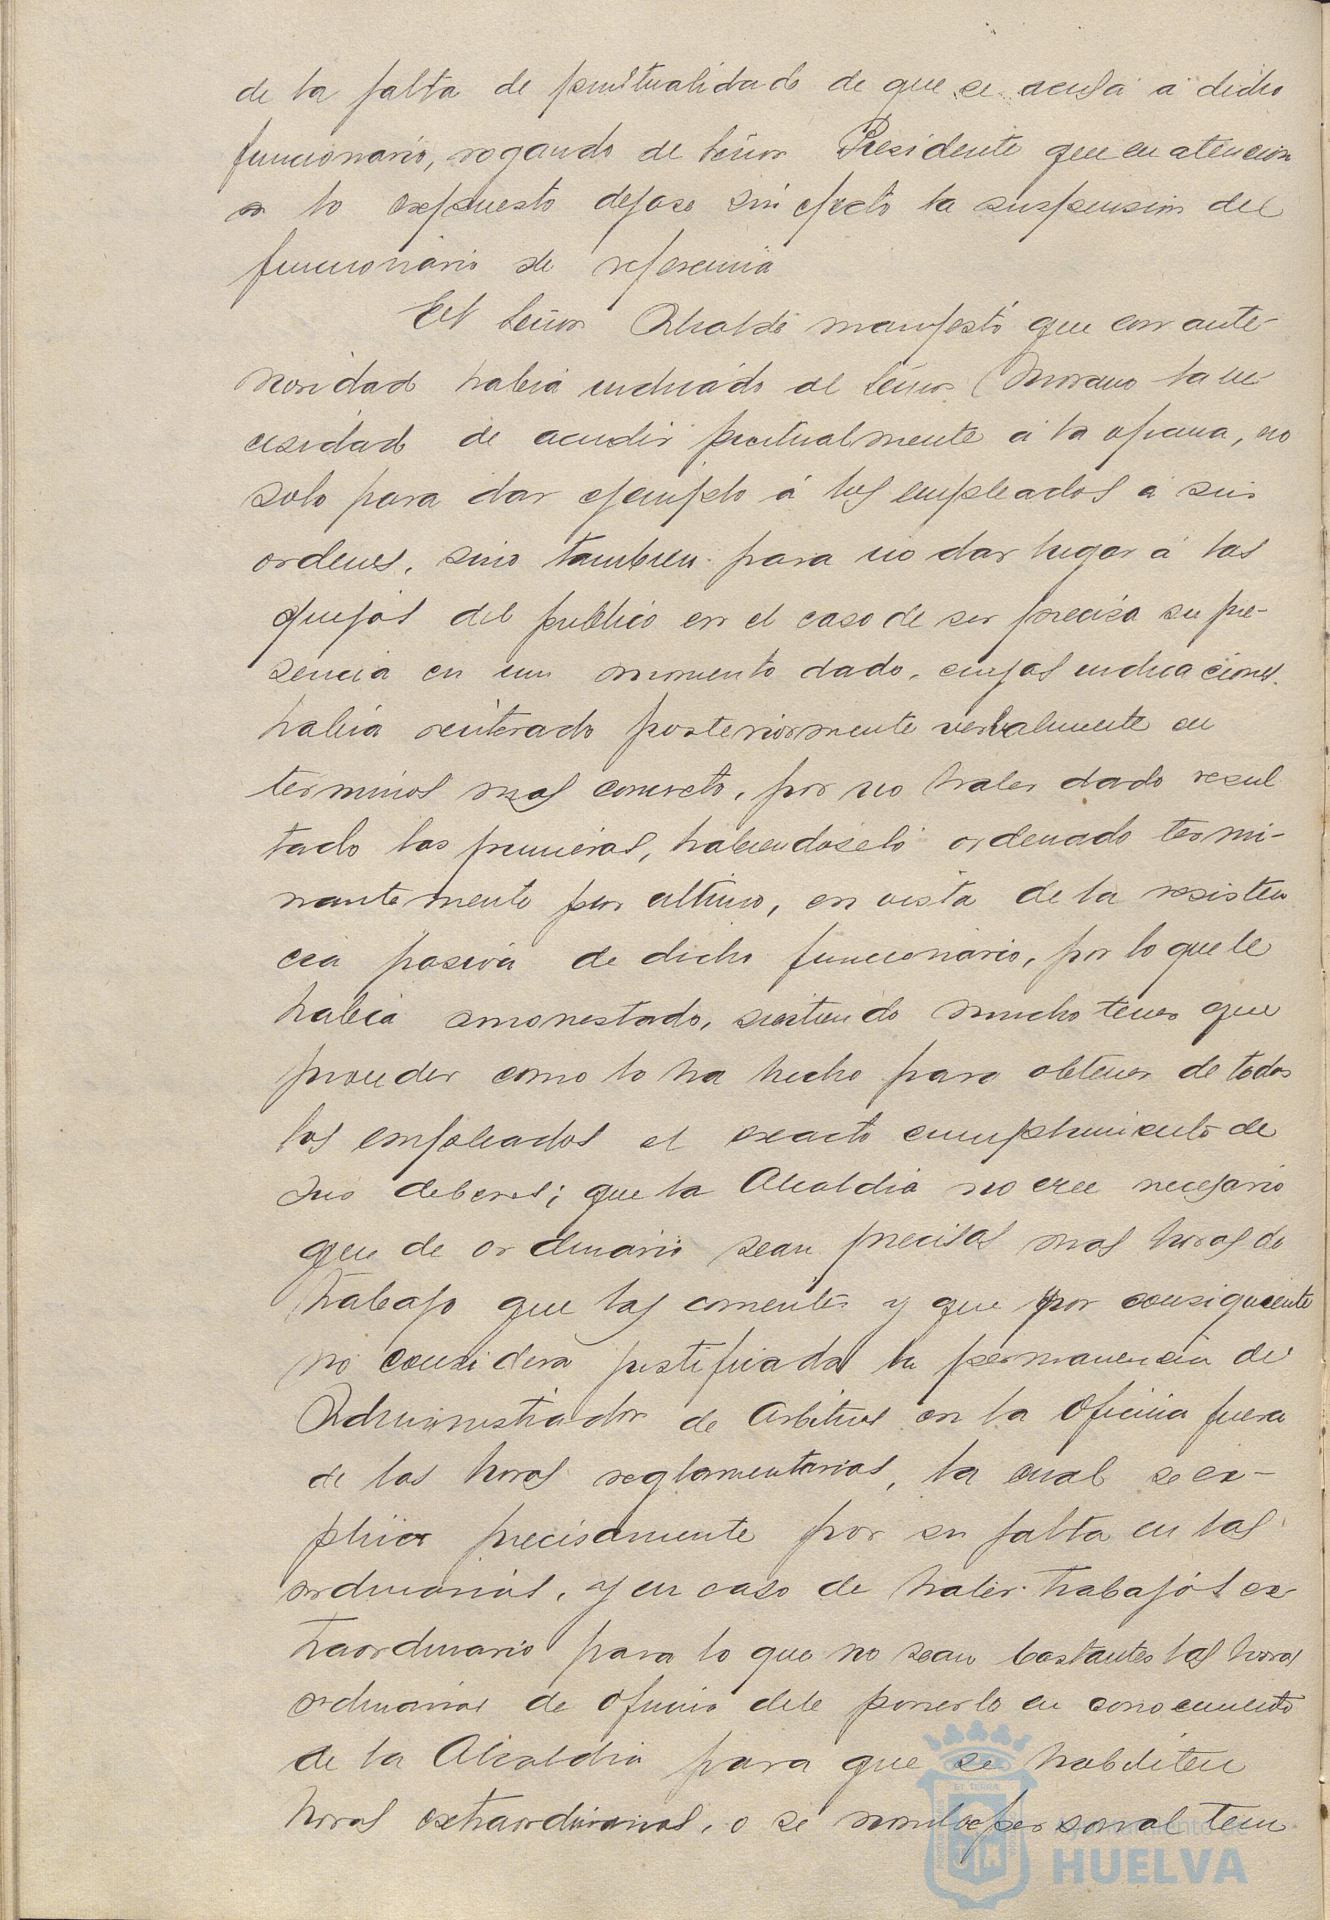 de la falta de puntualidad de que se acusa á dicho
funcionario, rogando de señor Presidente que en atencion
a lo expuesto dejase sin efecto la suspension del
funcionario de referencia
El señor Alcalde manifestó que con ante-
rioridad habia indicado al señor Moreno la ne
cesidad de acudir puntualmente á la oficina, no
solo para dar ejemplo á los empleados á sus
ordenes, sino tambien para no dar lugar á las
quejas del publico en el caso de ser precisa su pre-
sencia en un momento dado, cuyas indicaciones
habia reiterado posteriormente verbalmente en
terminos mas concreto, por no haber dado resul
tado las primeras, habiendoselo ordenado termi-
nantemente por ultimo, en vista de la resisten
cia pasiva de dicho funcionario, por lo que le
habia amonestado, sintiendo mucho tener que
proceder como lo ha hecho para obtener de todos
los empleados el exacto cumplimiento de
sus deberes; que la Alcaldia no cree necesario
que de ordinario sean precisas mas horas de
trabajo que las corrientes y que por consiguiente
no considera justificada la permanencia del
Administrador de Arbitrios en la Oficina fuera
de las horas reglamentarias, la cual se ex-
plica precisamente por su falta en las
ordinarias, y en caso de haber trabajos ex
traordinario para lo que no sean bastantes las horas
ordinarias de oficina debe ponerlo en conocimiento
de la Alcaldia para que se habiliten
horas extraordinarias, o se nombre personal tem
Ayuntamiento de
HUELVA